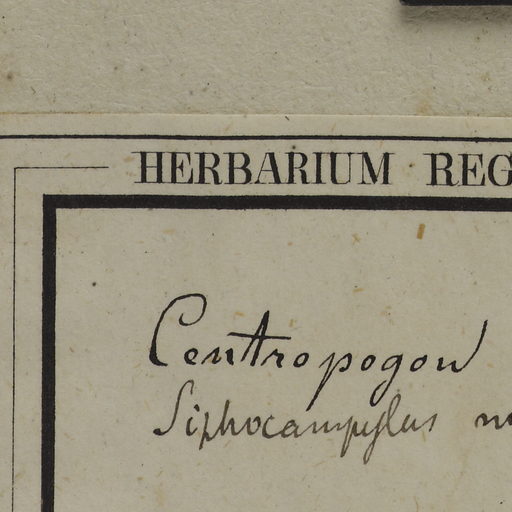 HERBARIUM REG
Centropogon
Siphocampylus